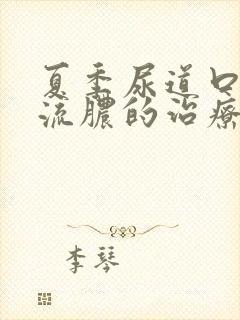 夏季尿道口
流脓的治疗
李琴